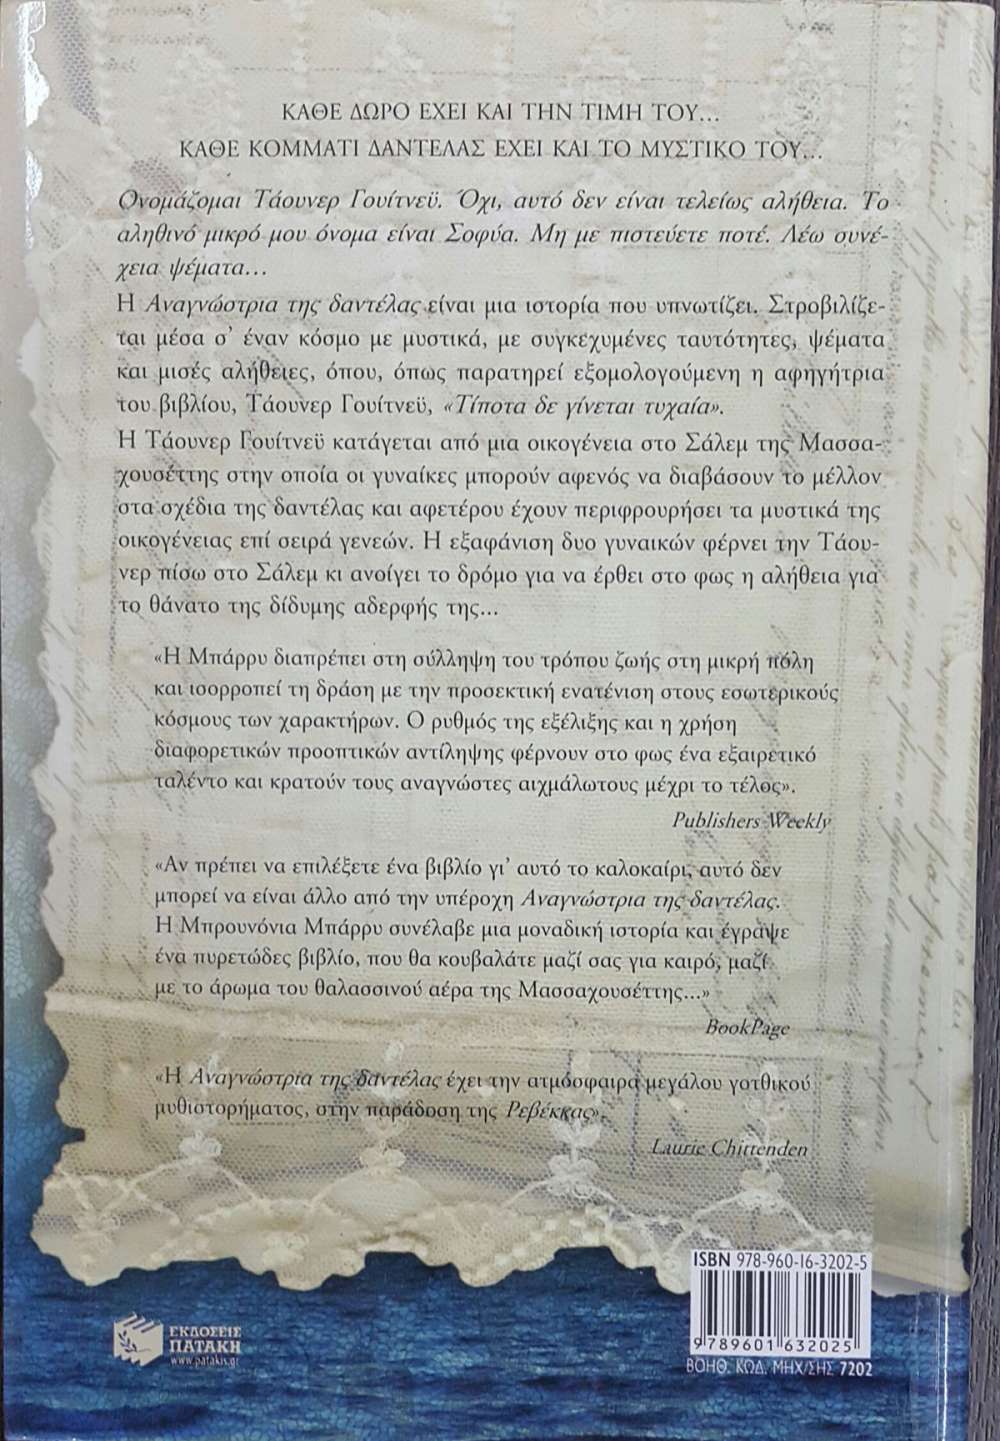 ΚΑΘΕ ΔΩΡΟ ΕΧΕΙ ΚΑΙ ΤΗΝ ΤΙΜΗ ΤΟΥ...
ΚΑΘΕ ΚΟΜΜΑΤΙ ΔΑΝΤΕΛΑΣ ΕΧΕΙ ΚΑΙ ΤΟ ΜΥΣΤΙΚΟ ΤΟΥ...
Ονομάζομαι Τάουνερ Γουίτνεϋ. Όχι, αυτό δεν είναι τελείως αλήθεια. Το
αληθινό μικρό μου όνομα είναι Σοφύα. Μη με πιστεύετε ποτέ. Λέω συνέ-
χεια ψέματα...
Η Αναγνώστρια της δαντέλας είναι μια ιστορία που υπνωτίζει. Στροβιλίζε-
ται μέσα σ' έναν κόσμο με μυστικά, με συγκεχυμένες ταυτότητες, ψέματα
και μισές αλήθειες, όπου, όπως παρατηρεί εξομολογούμενη η αφηγήτρια
του βιβλίου, Τάουνερ Γουίτνεϋ, «Τίποτα δε γίνεται τυχαία».
Η Τάουνερ Γουίτνεϋ κατάγεται από μια οικογένεια στο Σάλεμ της Μασσα-
χουσέττης στην οποία οι γυναίκες μπορούν αφενός να διαβάσουν το μέλλον
στα σχέδια της δαντέλας και αφετέρου έχουν περιφρουρήσει τα μυστικά της
οικογένειας επί σειρά γενεών. Η εξαφάνιση δυο γυναικών φέρνει την Τάου-
νερ πίσω στο Σάλεμ κι ανοίγει το δρόμο για να έρθει στο φως η αλήθεια για
το θάνατο της δίδυμης αδερφής της...
«Η Μπάρρυ διαπρέπει στη σύλληψη του τρόπου ζωής στη μικρή πόλη
και ισορροπεί τη δράση με την προσεκτική ενατένιση στους εσωτερικούς
κόσμους των χαρακτήρων. Ο ρυθμός της εξέλιξης και η χρήση
διαφορετικών προοπτικών αντίληψης φέρνουν στο φως ένα εξαιρετικό
ταλέντο και κρατούν τους αναγνώστες αιχμάλωτους μέχρι το τέλος».
Publishers Weekly
«Αν πρέπει να επιλέξετε ένα βιβλίο γι' αυτό το καλοκαίρι, αυτό δεν
μπορεί να είναι άλλο από την υπέροχη Αναγνώστρια της δαντέλας.
Η Μπρουνόνια Μπάρρυ συνέλαβε μια μοναδική ιστορία και έγραψε
ένα πυρετώδες βιβλίο, που θα κουβαλάτε μαζί σας για καιρό, μαζί
με το άρωμα του θαλασσινού αέρα της Μασσαχουσέττης...»
BookPage
«Η Αναγνώστρια της δαντέλας έχει την ατμόσφαιρα μεγάλου γοτθικού
μυθιστορήματος, στην παράδοση της Ρεβέκκας».
Laurie Chittenden
ISBN 978-960-16-3202-5
9 789601 632025
ΒΟΗΘ. ΚΩΔ. ΜΗΧ/ΣΗΣ 7202
ΕΚΔΟΣΕΙΣ
ΠΑΤΑΚΗ
www.patakis.gr